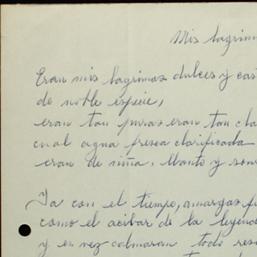 Mis lagrim
Eran mis lagrimas dulces y cas
de noble especie,
eran tan puras eran tan cla
cual agua fresca clarificada
eran de niña, llanto y son
Ya con el tiempo, amargas fu
como el acibar de la leyend
y en vez calmaran todo res